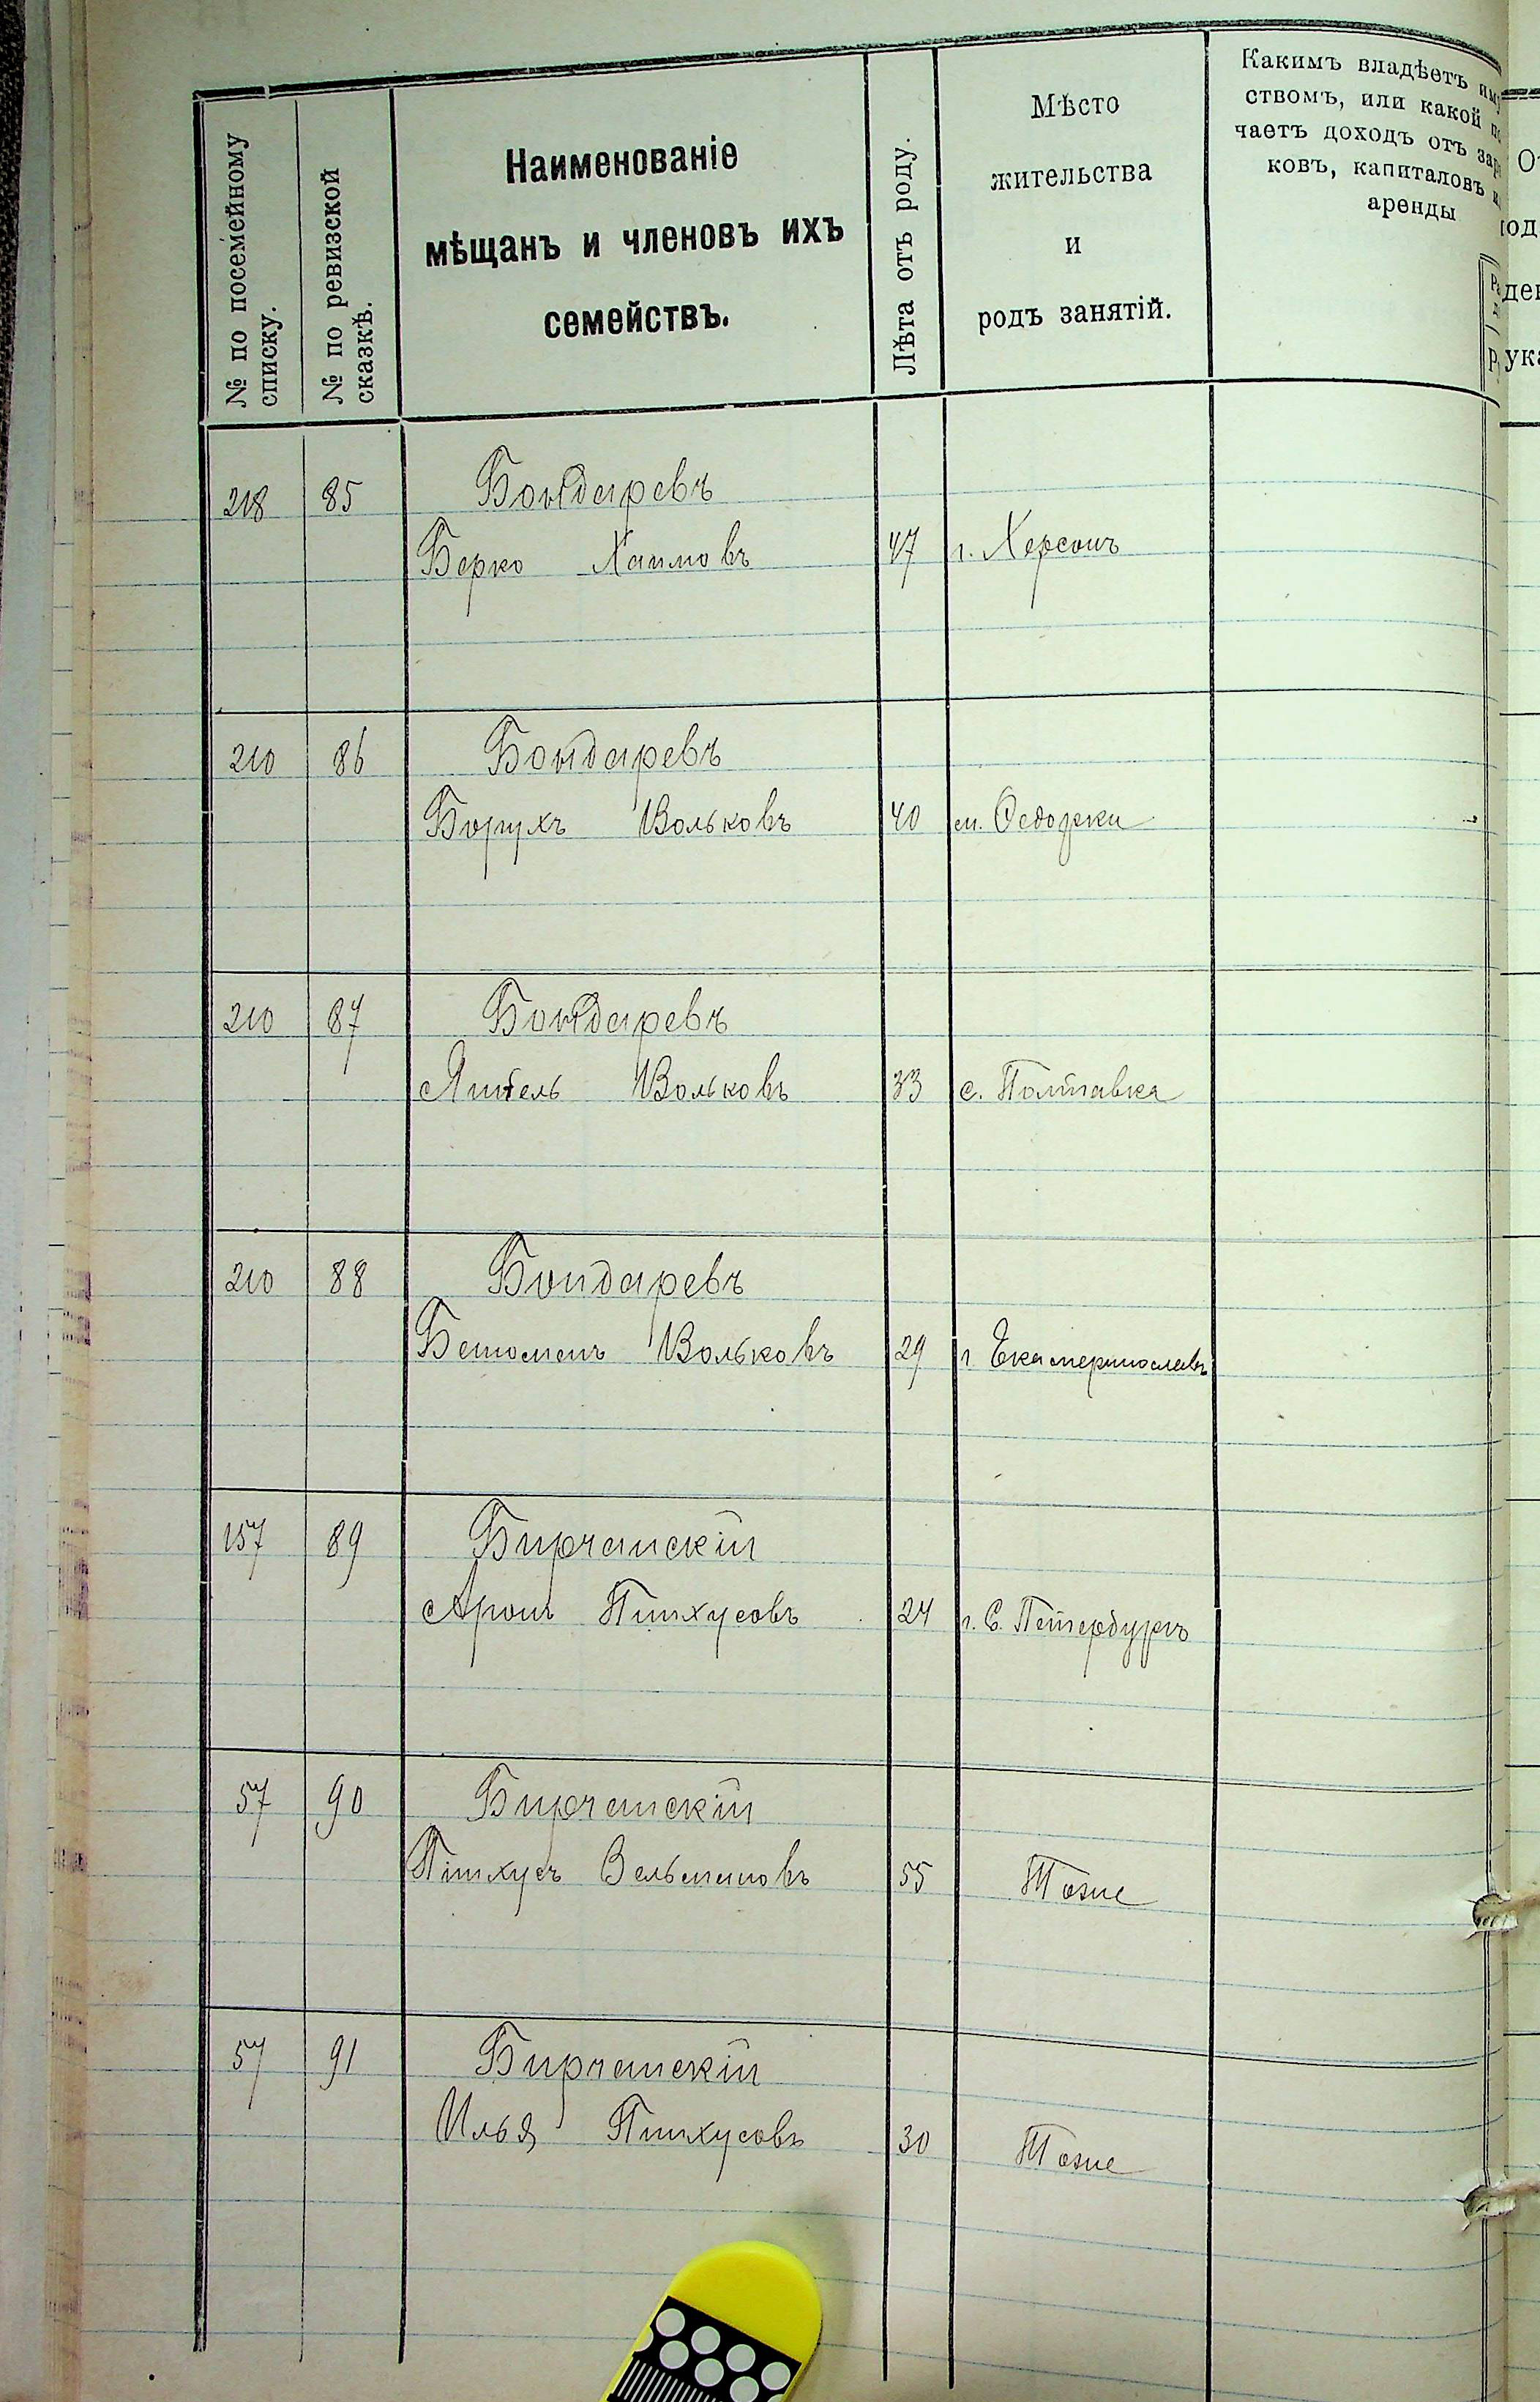 № по посемейному
списку.
№ по ревизской
сказкѣ.
Наименованіе
мѣщанъ и членовъ ихъ
семействъ.
Лѣта отъ роду.
Мѣсто
жительства
и
родъ занятій.
Какимъ владѣетъ
ствомъ, или какой
чаетъ доходъ отъ
ковъ, капиталовъ
аренды
218 85 Бондаревъ
Берко Хаимовъ 47 г. Херсонъ
210 86 Бондаревъ
Борухъ Вольковъ 40 м.
210 87 Бондаревъ
Вольковъ 33 с. Полтавка
210 88 Бондаревъ
Вольковъ 29 г Екатеринославъ
157 89 Бирчанскій
Аронъ Пинхусовъ 24 г. С. Петербургъ
57 90 Бирчанскій
Пинхусъ Вельмановъ 55 Тоже
57 91 Бирчанскій
Илья Пинхусовъ 30 Тоже